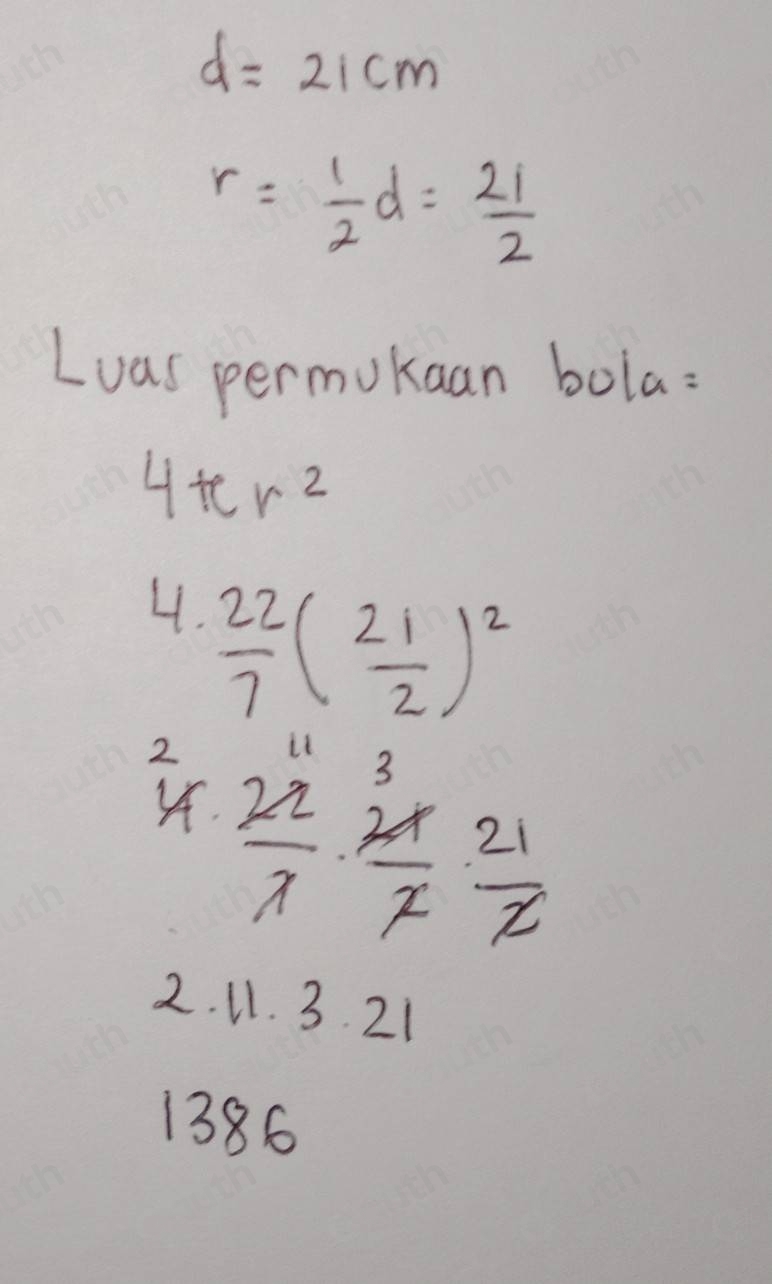 d = 21 cm
r = 1/2 d = 21/2
Luas permukaan bola =
4 π r²
4 . 22/7 ( 21/2 )²
2 11 3
4 . 22/7 . 21/2 . 21/2
2 . 11 . 3 . 21
1386